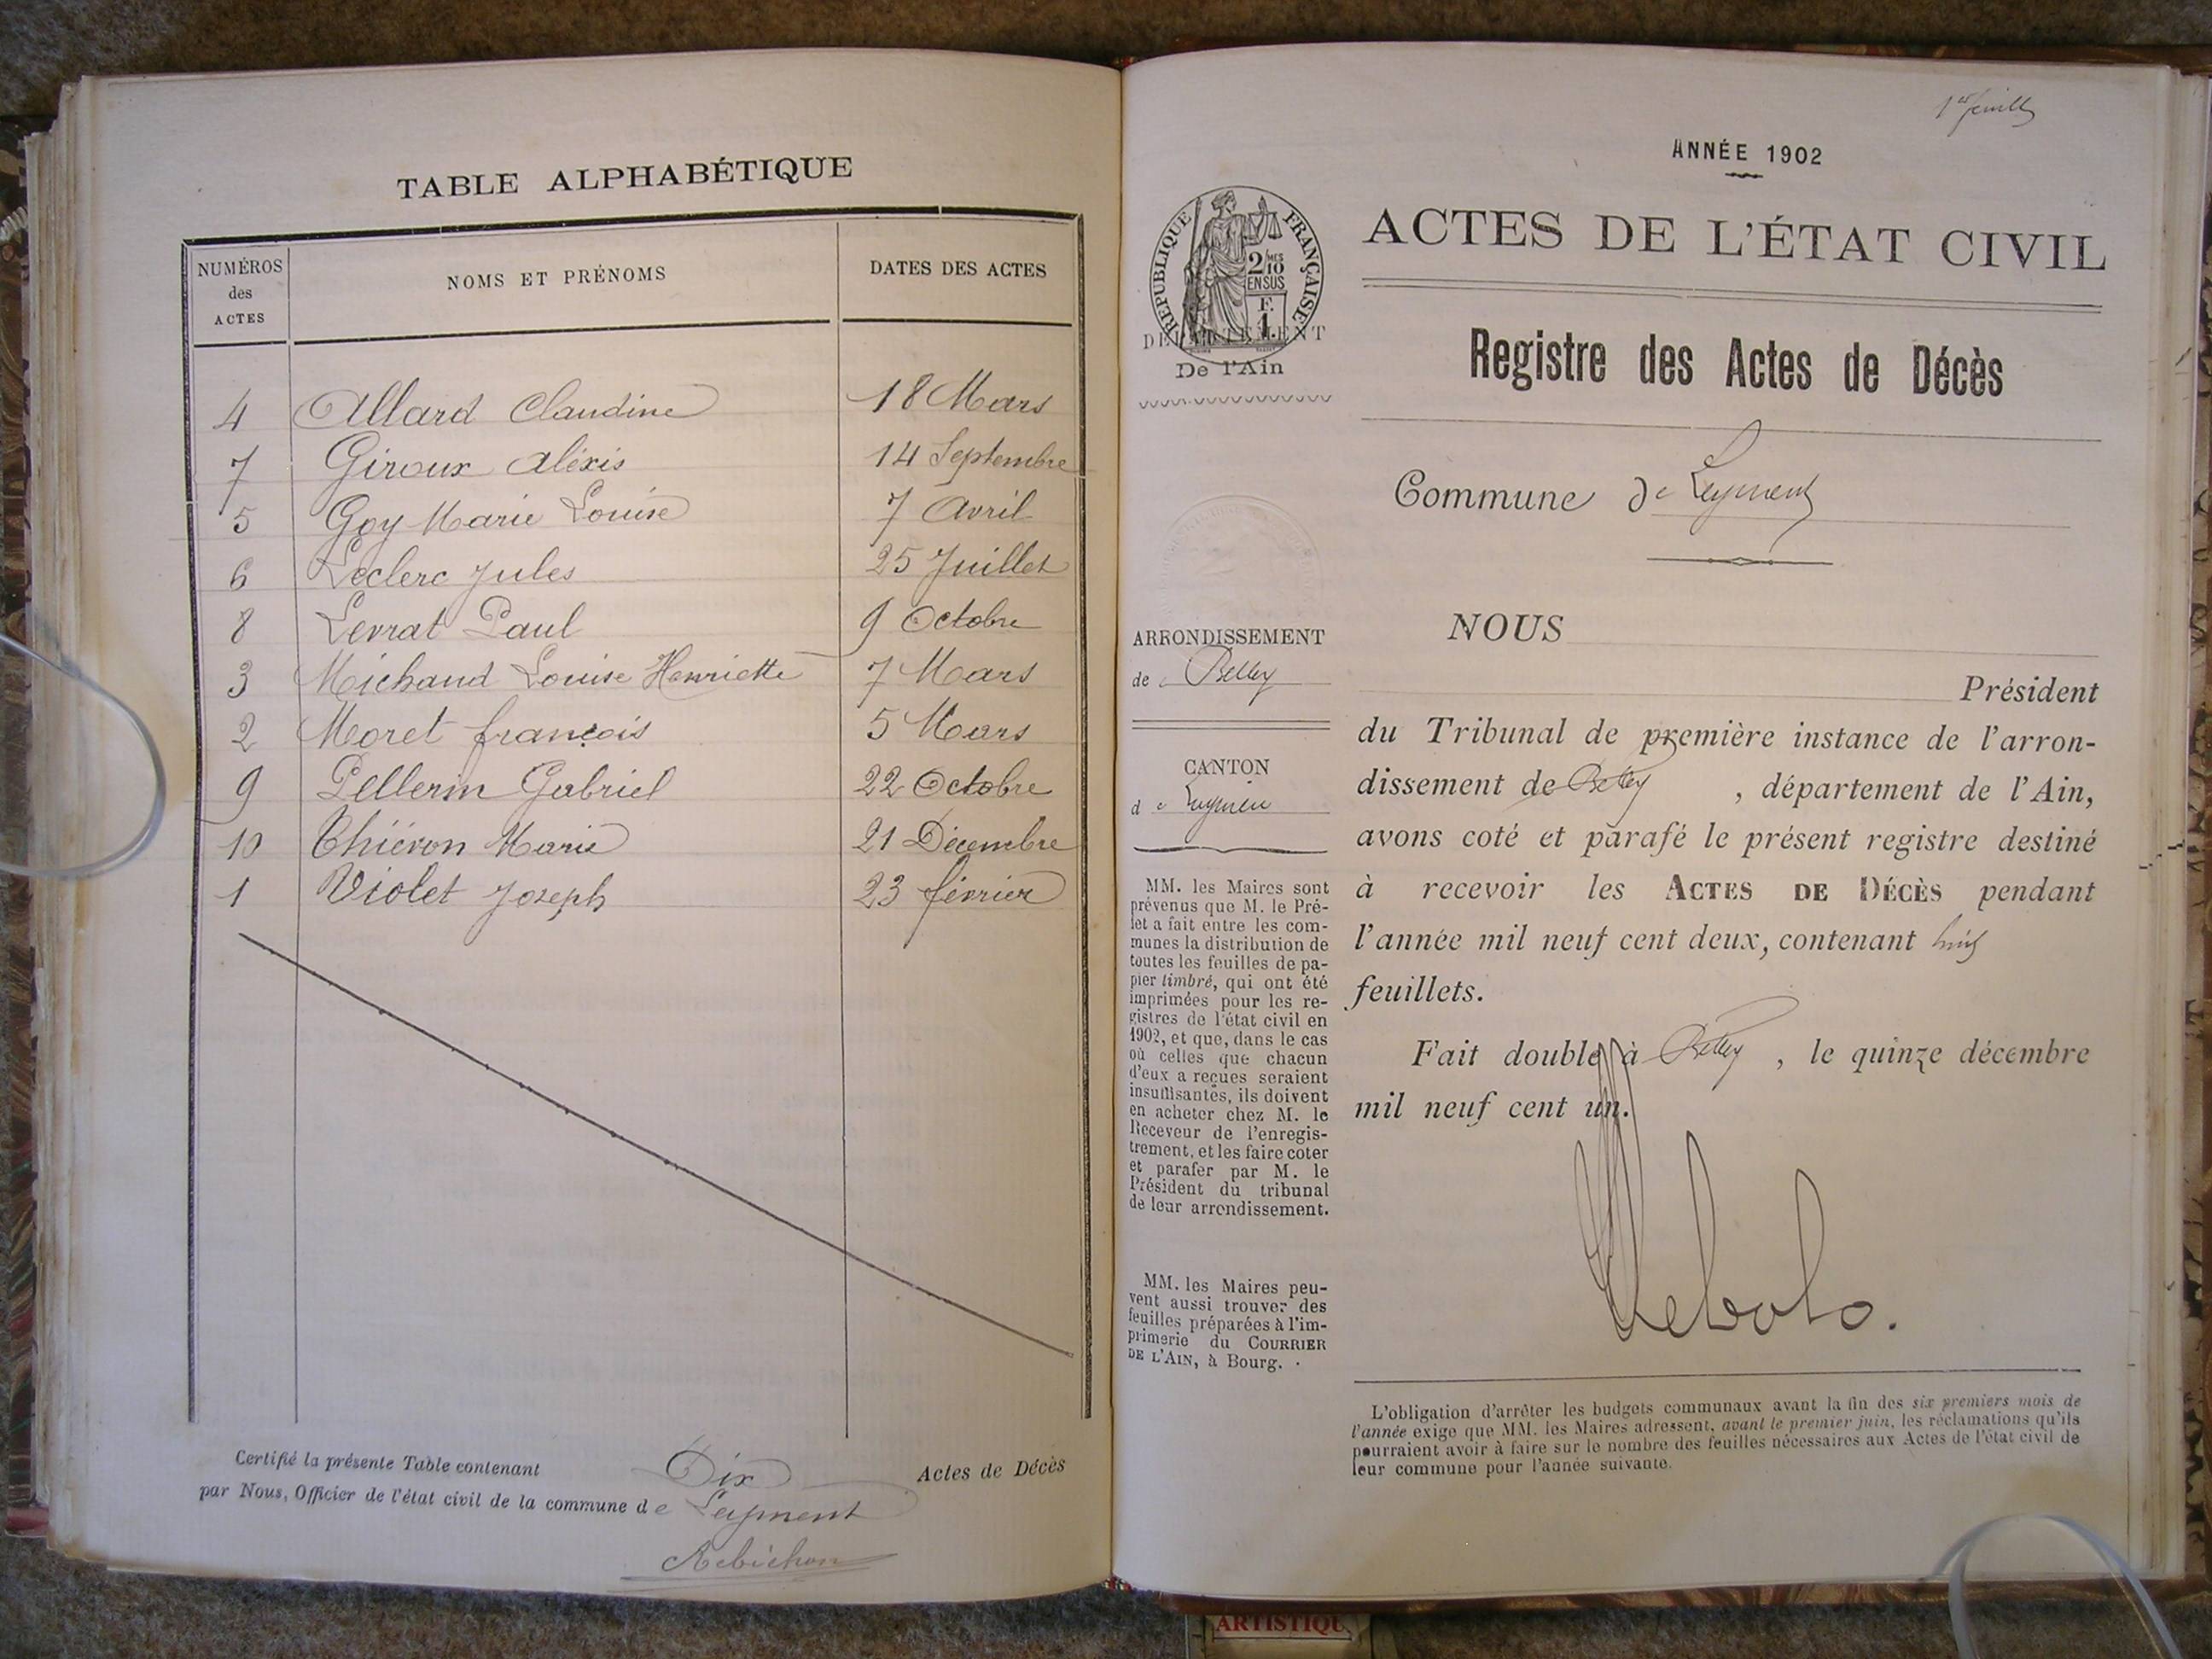 TABLE ALPHABÉTIQUE
NUMÉROS
des
ACTES
NOMS ET PRÉNOMS
DATES DES ACTES
4 Allard Claudine 18 Mars
7 Giroux Aléxis 14 Septembre
5 Goy Marie Louise 7 Avril
6 Leclerc Jules 25 Juillet
8 Levrat Paul 9 Octobre
3 Michaud Louise Henriette 7 Mars
2 Moret françois 5 Mars
9 Pellerin Gabriel 22 Octobre
10 Thiévon Marie 21 Décembre
1 Violet Joseph 23 février
Certifié la présente Table contenant Dix Actes de Décès
par Nous, Officier de l'état civil de la commune de Leyment
Rebichon
1er feuillet
ANNÉE 1902
RÉPUBLIQUE FRANÇAISE
2/10MES
EN SUS
F.
1.
DÉPARTEMENT
De l'Ain
ACTES DE L'ÉTAT CIVIL
Registre des Actes de Décès
Commune de Leyment
ARRONDISSEMENT
de Belley
CANTON
de Lagnieu
MM. les Maires sont
prévenus que M. le Pré-
fet a fait entre les com-
munes la distribution de
toutes les feuilles de pa-
pier timbré, qui ont été
imprimées pour les re-
gistres de l'état civil en
1902, et que, dans le cas
où celles que chacun
d'eux a reçues seraient
insuffisantes, ils doivent
en acheter chez M. le
Receveur de l'enregis-
trement, et les faire coter
et parafer par M. le
Président du tribunal
de leur arrondissement.
MM. les Maires peu-
vent aussi trouver des
feuilles préparées à l'im-
primerie du COURRIER
DE L'AIN, à Bourg.
NOUS
Président
du Tribunal de première instance de l'arron-
dissement de Belley , département de l'Ain,
avons coté et parafé le présent registre destiné
à recevoir les ACTES DE DÉCÈS pendant
l'année mil neuf cent deux, contenant huit
feuillets.
Fait double à Belley , le quinze décembre
mil neuf cent un.
L'obligation d'arrêter les budgets communaux avant la fin des six premiers mois de
l'année exige que MM. les Maires adressent, avant le premier juin, les réclamations qu'ils
pourraient avoir à faire sur le nombre des feuilles nécessaires aux Actes de l'état civil de
leur commune pour l'année suivante.
ARTISTIQU